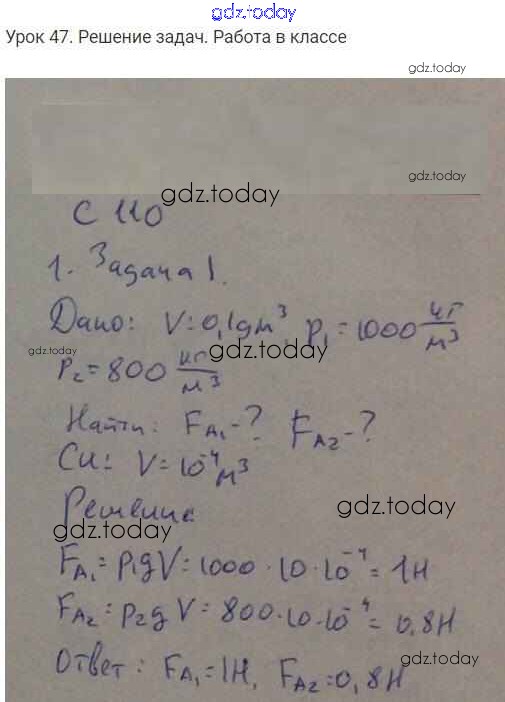 gdz.today
Урок 47. Решение задач. Работа в классе
gdz.today
gdz.today
gdz.today
С 110
1. Задача 1.
Дано: V=0,1дм³, ρ₁=1000 кг/м³
gdz.today
gdz.today
ρ₂=800 кг/м³
Найти: F_A₁-? F_A₂-?
Си: V=10⁻⁴м³
Решение
gdz.today
gdz.today
F_A₁=ρ₁gV=1000·10·10⁻⁴=1Н
F_A₂=ρ₂gV=800·10·10⁻⁴=0,8Н
Ответ: F_A₁=1Н, F_A₂=0,8Н
gdz.today